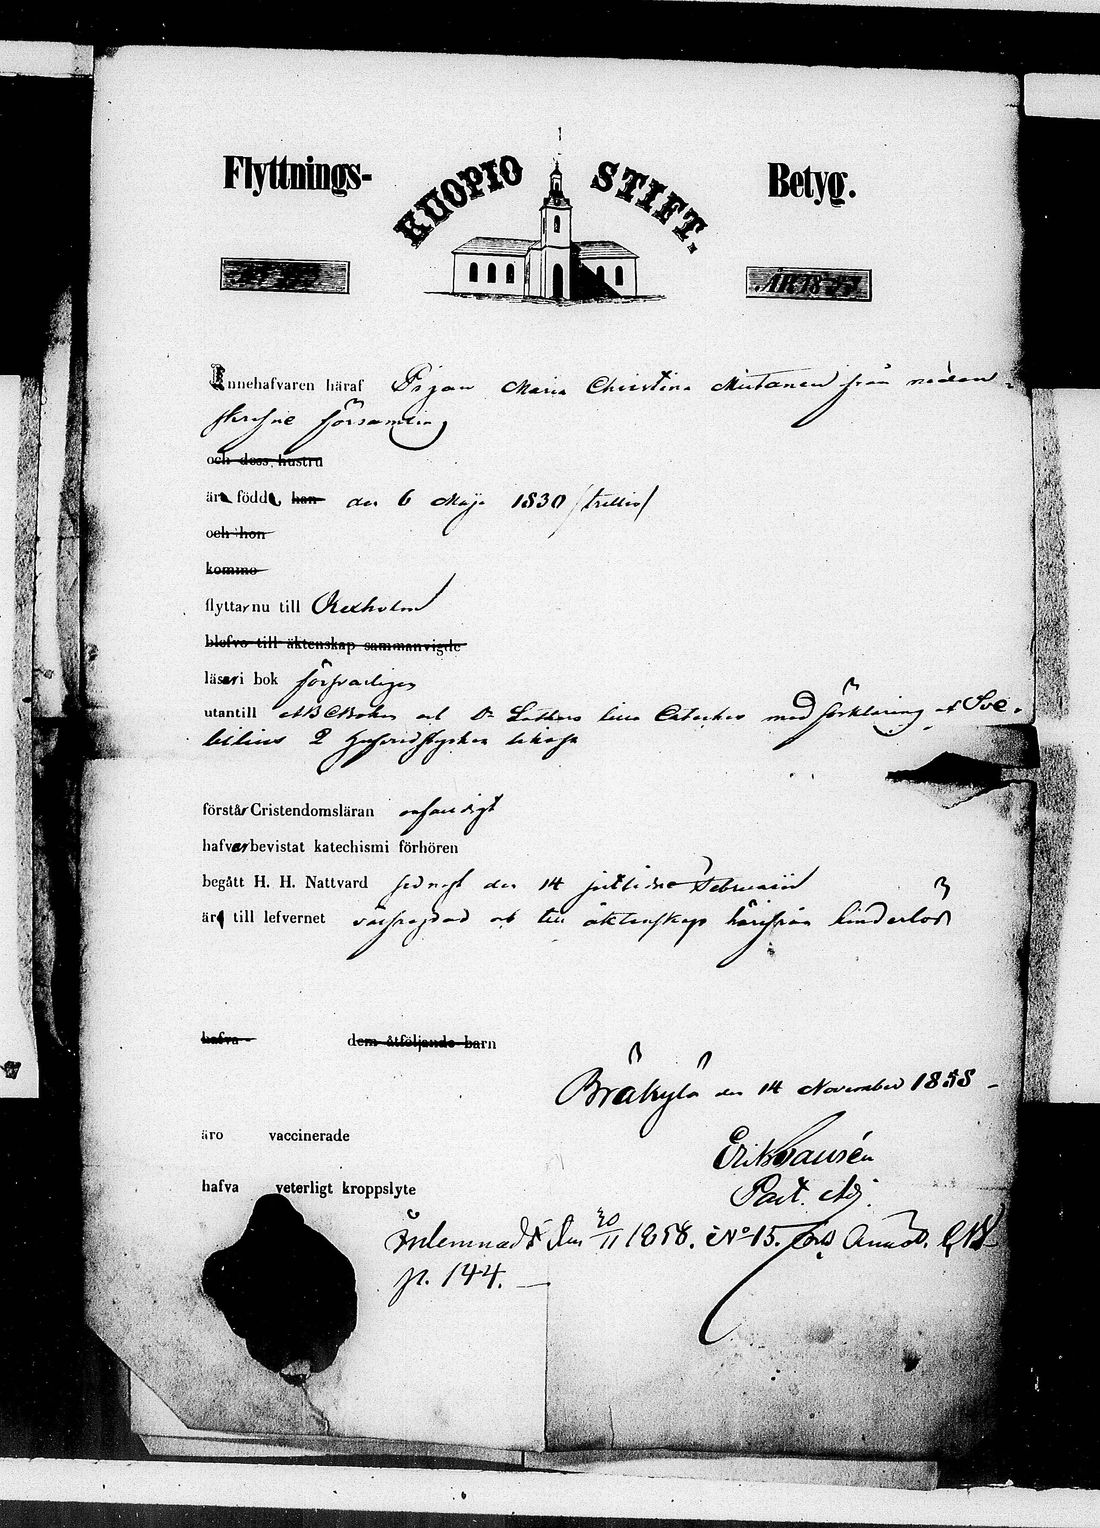 Flyttnings- KUOPIO STIFT. Betyg.
ÅR 18
Innehafvaren häraf Pigan Maria Christina Mustonen från nedan-
skrefne församling
och dess hustru
äro födde han den 6 Maji 1830 /trettio/
och hon
komne
flyttar nu till Oxholm
blefvo till äktenskap sammanvigde
läser i bok försvarligen
utantill ABCboken och Dr Luthers lilla Cateches med förklaring af Sve-
bilius 2 hufvudstycken
förstår Cristendomsläran
hafver bevistat katechismi förhören
begått H. H. Nattvard sednast den 14 sistlidne Februarii
är till lefvernet och till äktenskap härifrån hinderlös
hafva dem åtföljande barn
Bräkylä den 14 November 1858
äro vaccinerade
Erik
Past. Adj.
hafva veterligt kroppslyte
Inlemnadt den 20/11 1858. No 15.
p. 144.